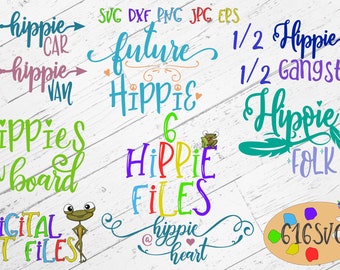 SVG DXF PNG JPG EPS
hippie
CAR
hippie
VAN
future
HIPPIE
1/2 Hippie
1/2 Gangst
Hippie
FOLK
HiPPiEs
board
6
HiPPiE
FiLES
@ hippie
heart
DIGITAL
FILES
616SVG